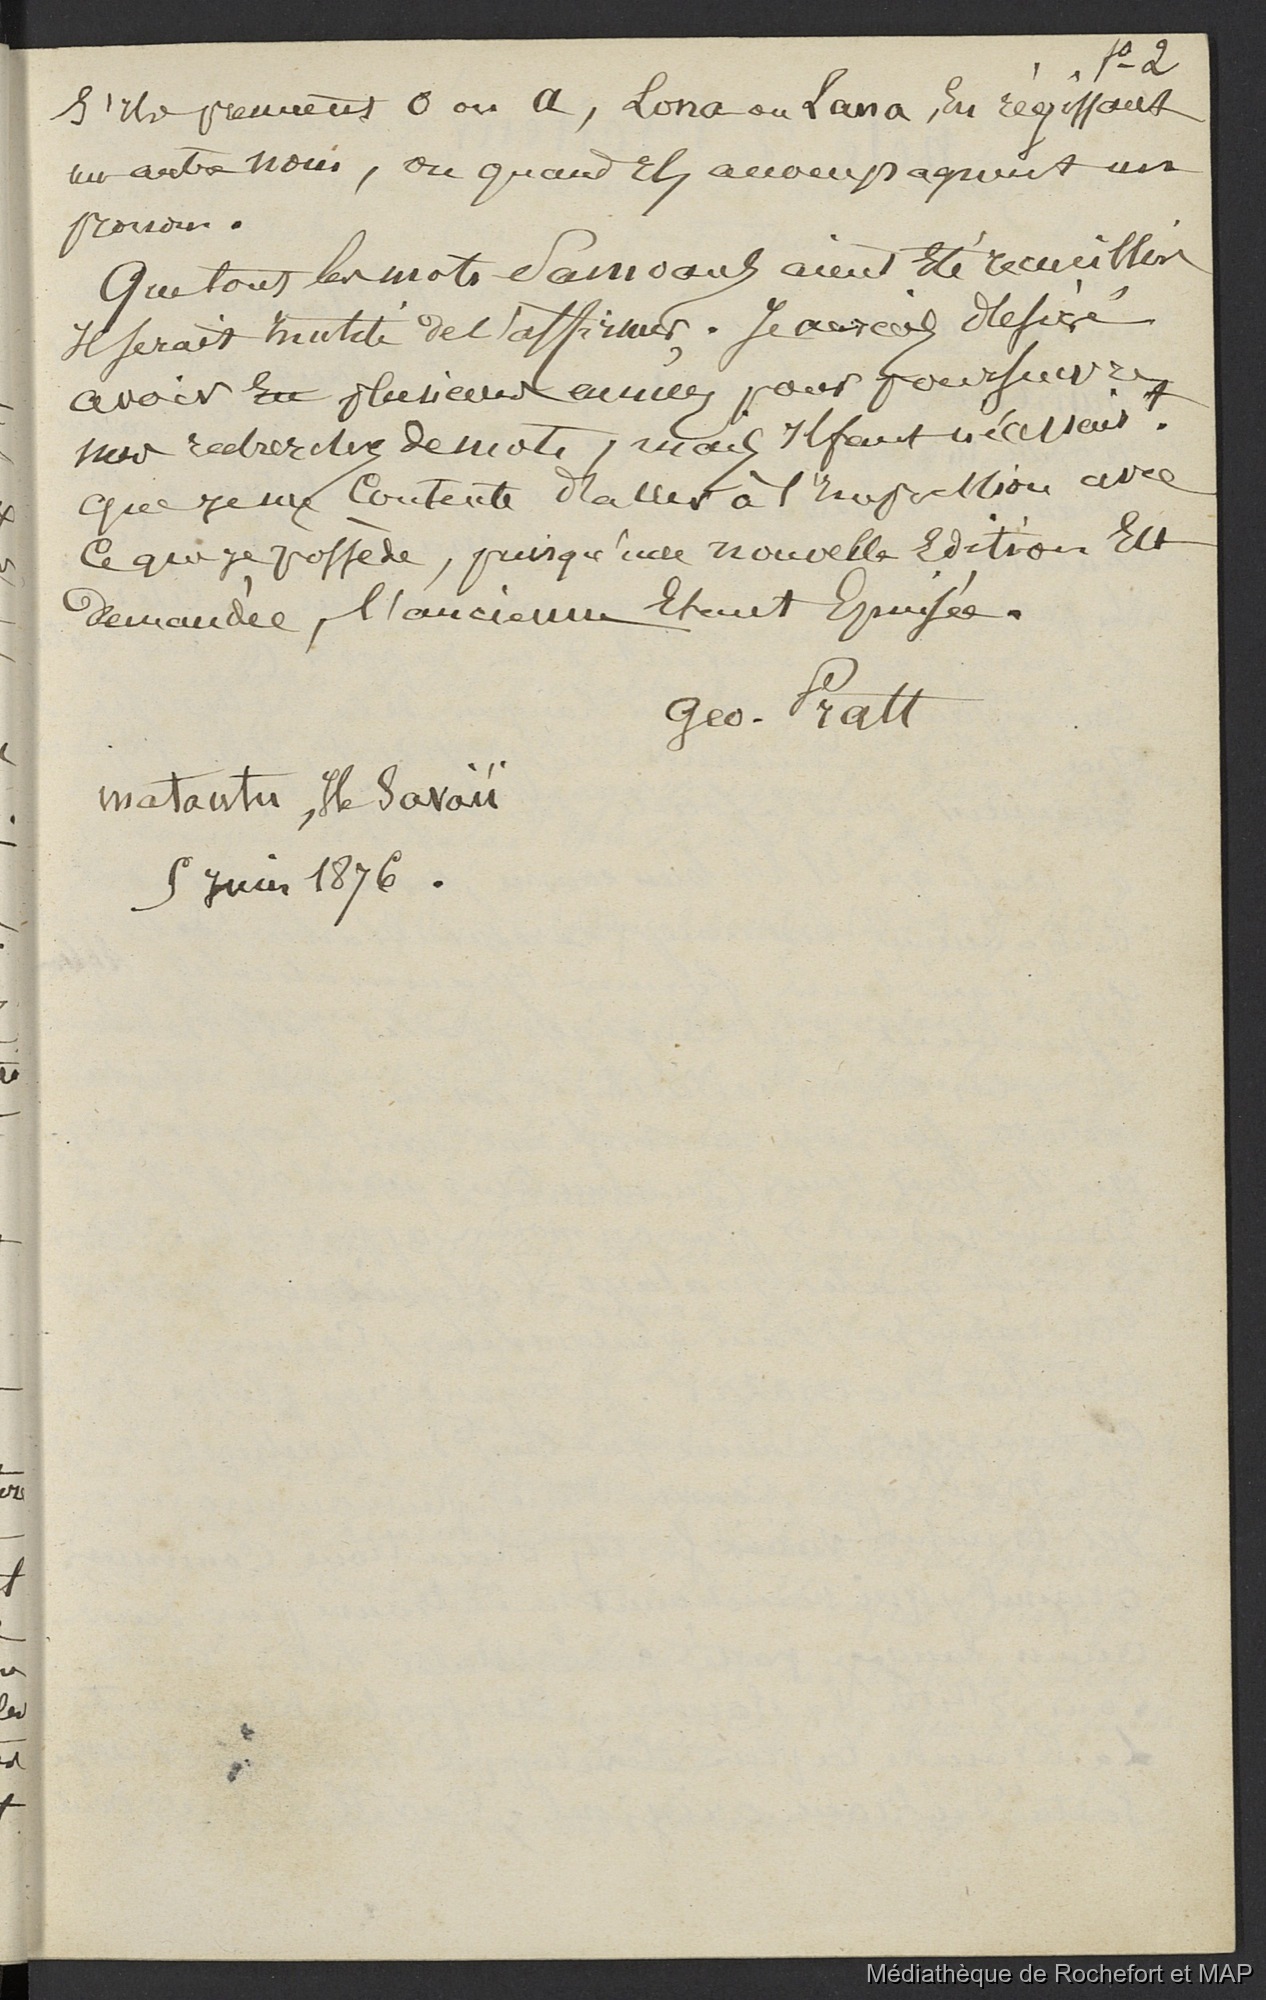 fo 2
S'ils prennent O ou a, Lona ou Lana, En régissant
un autre nom, ou quand Ils accompagnent un
pronom.
Que tous les mots Samoans aient Eté recueillis
Il serait Inutile de l'affirmer. Je aurais désiré
avoir Eu plusieurs années pour poursuivre
mes recherches de mots, mais Il faut nécessairt.
que je me Contente d'aller à l'Impression avec
Ce que je possède, puisqu'une nouvelle Edition Est
Demandée, l'ancienne Etant Epuisée.
Geo. Pratt
matautu, Ile Savaïi
5 Juin 1876.
Médiathèque de Rochefort et MAP